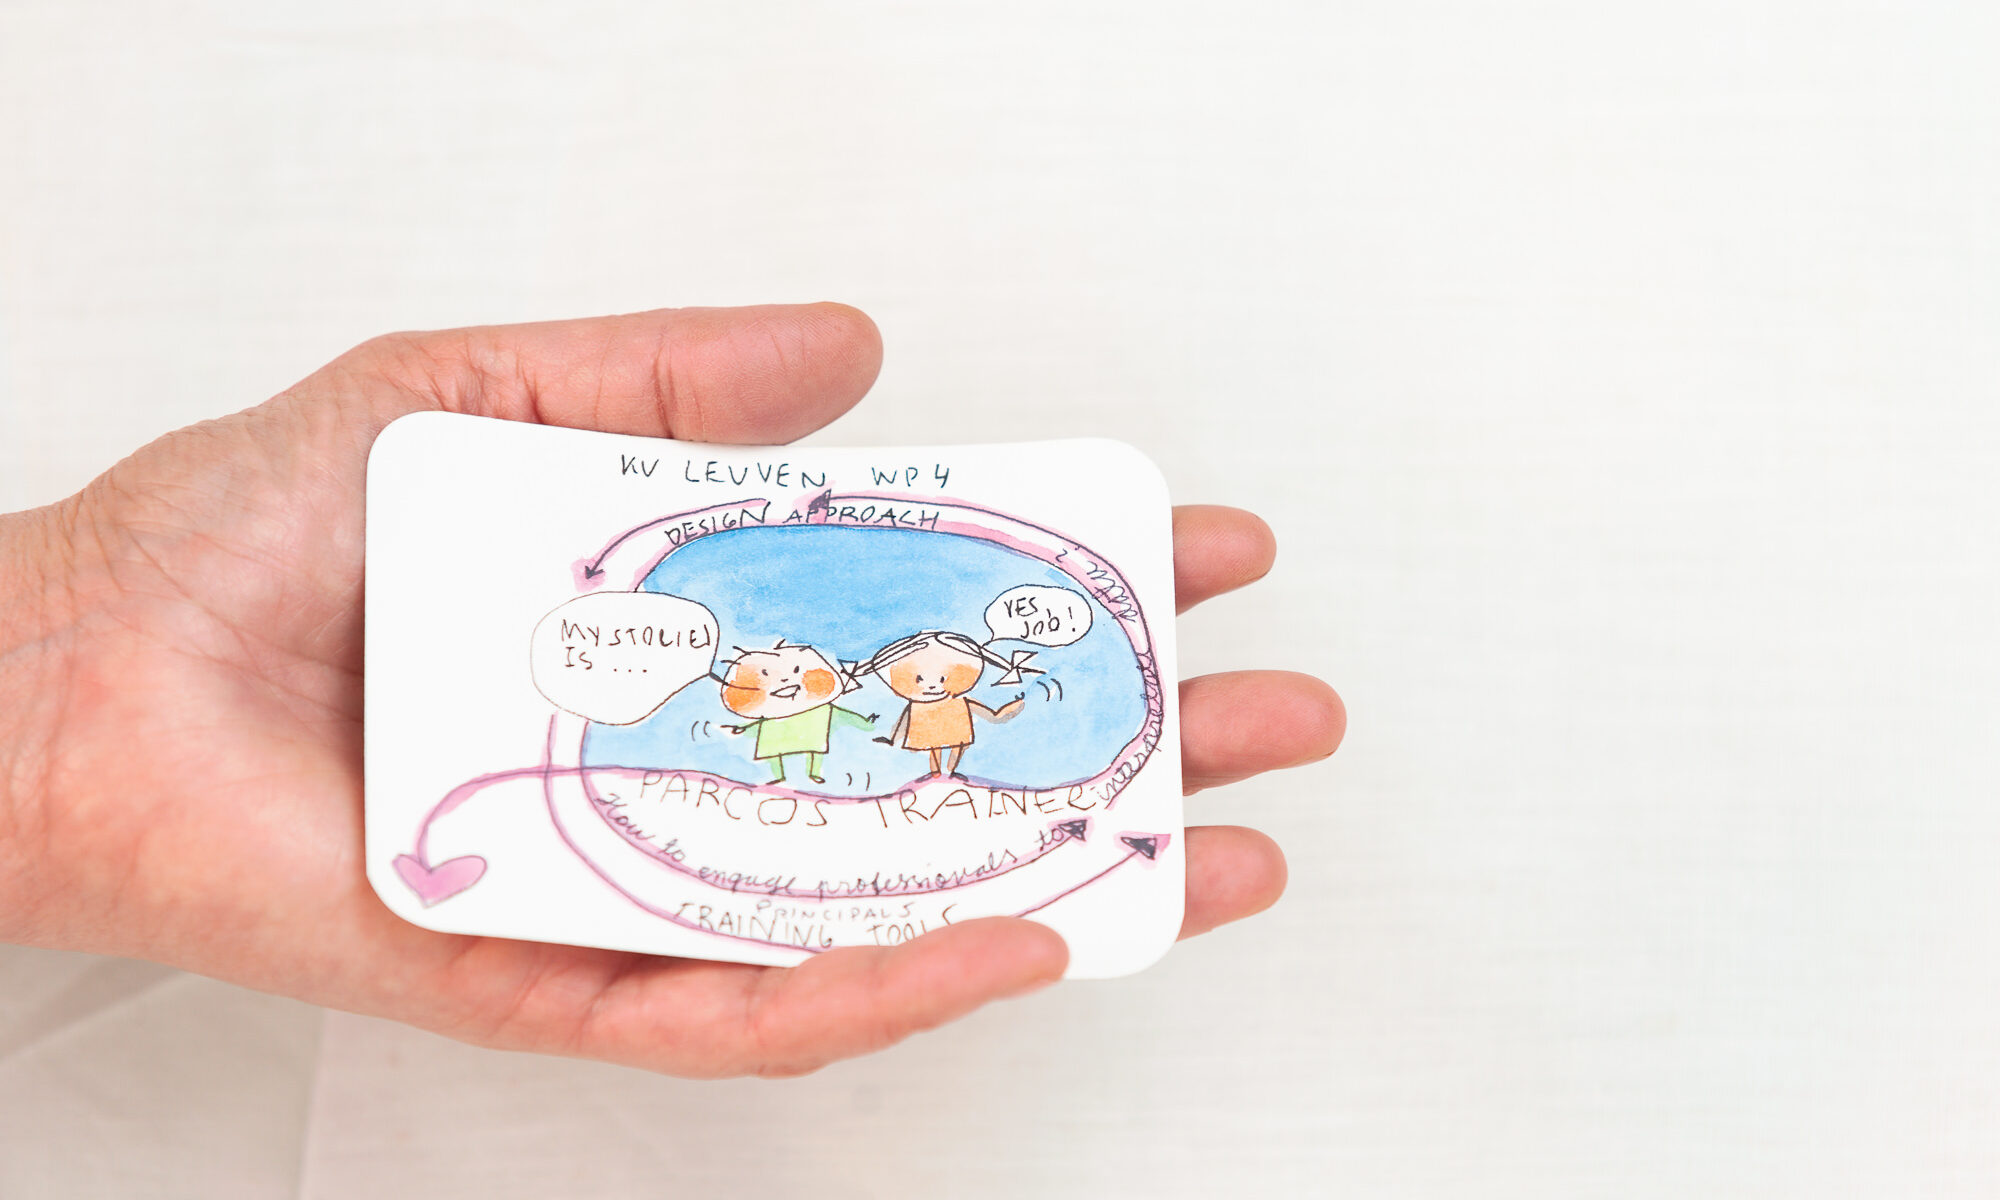 KU LEUVEN WP4
DESIGN APPROACH
MY STORIES
IS ...
YES,
JOB!
PARCOS TRAINER
How to engage professionals to
interpret
data ?
PRINCIPALS
TRAINING TOOLS